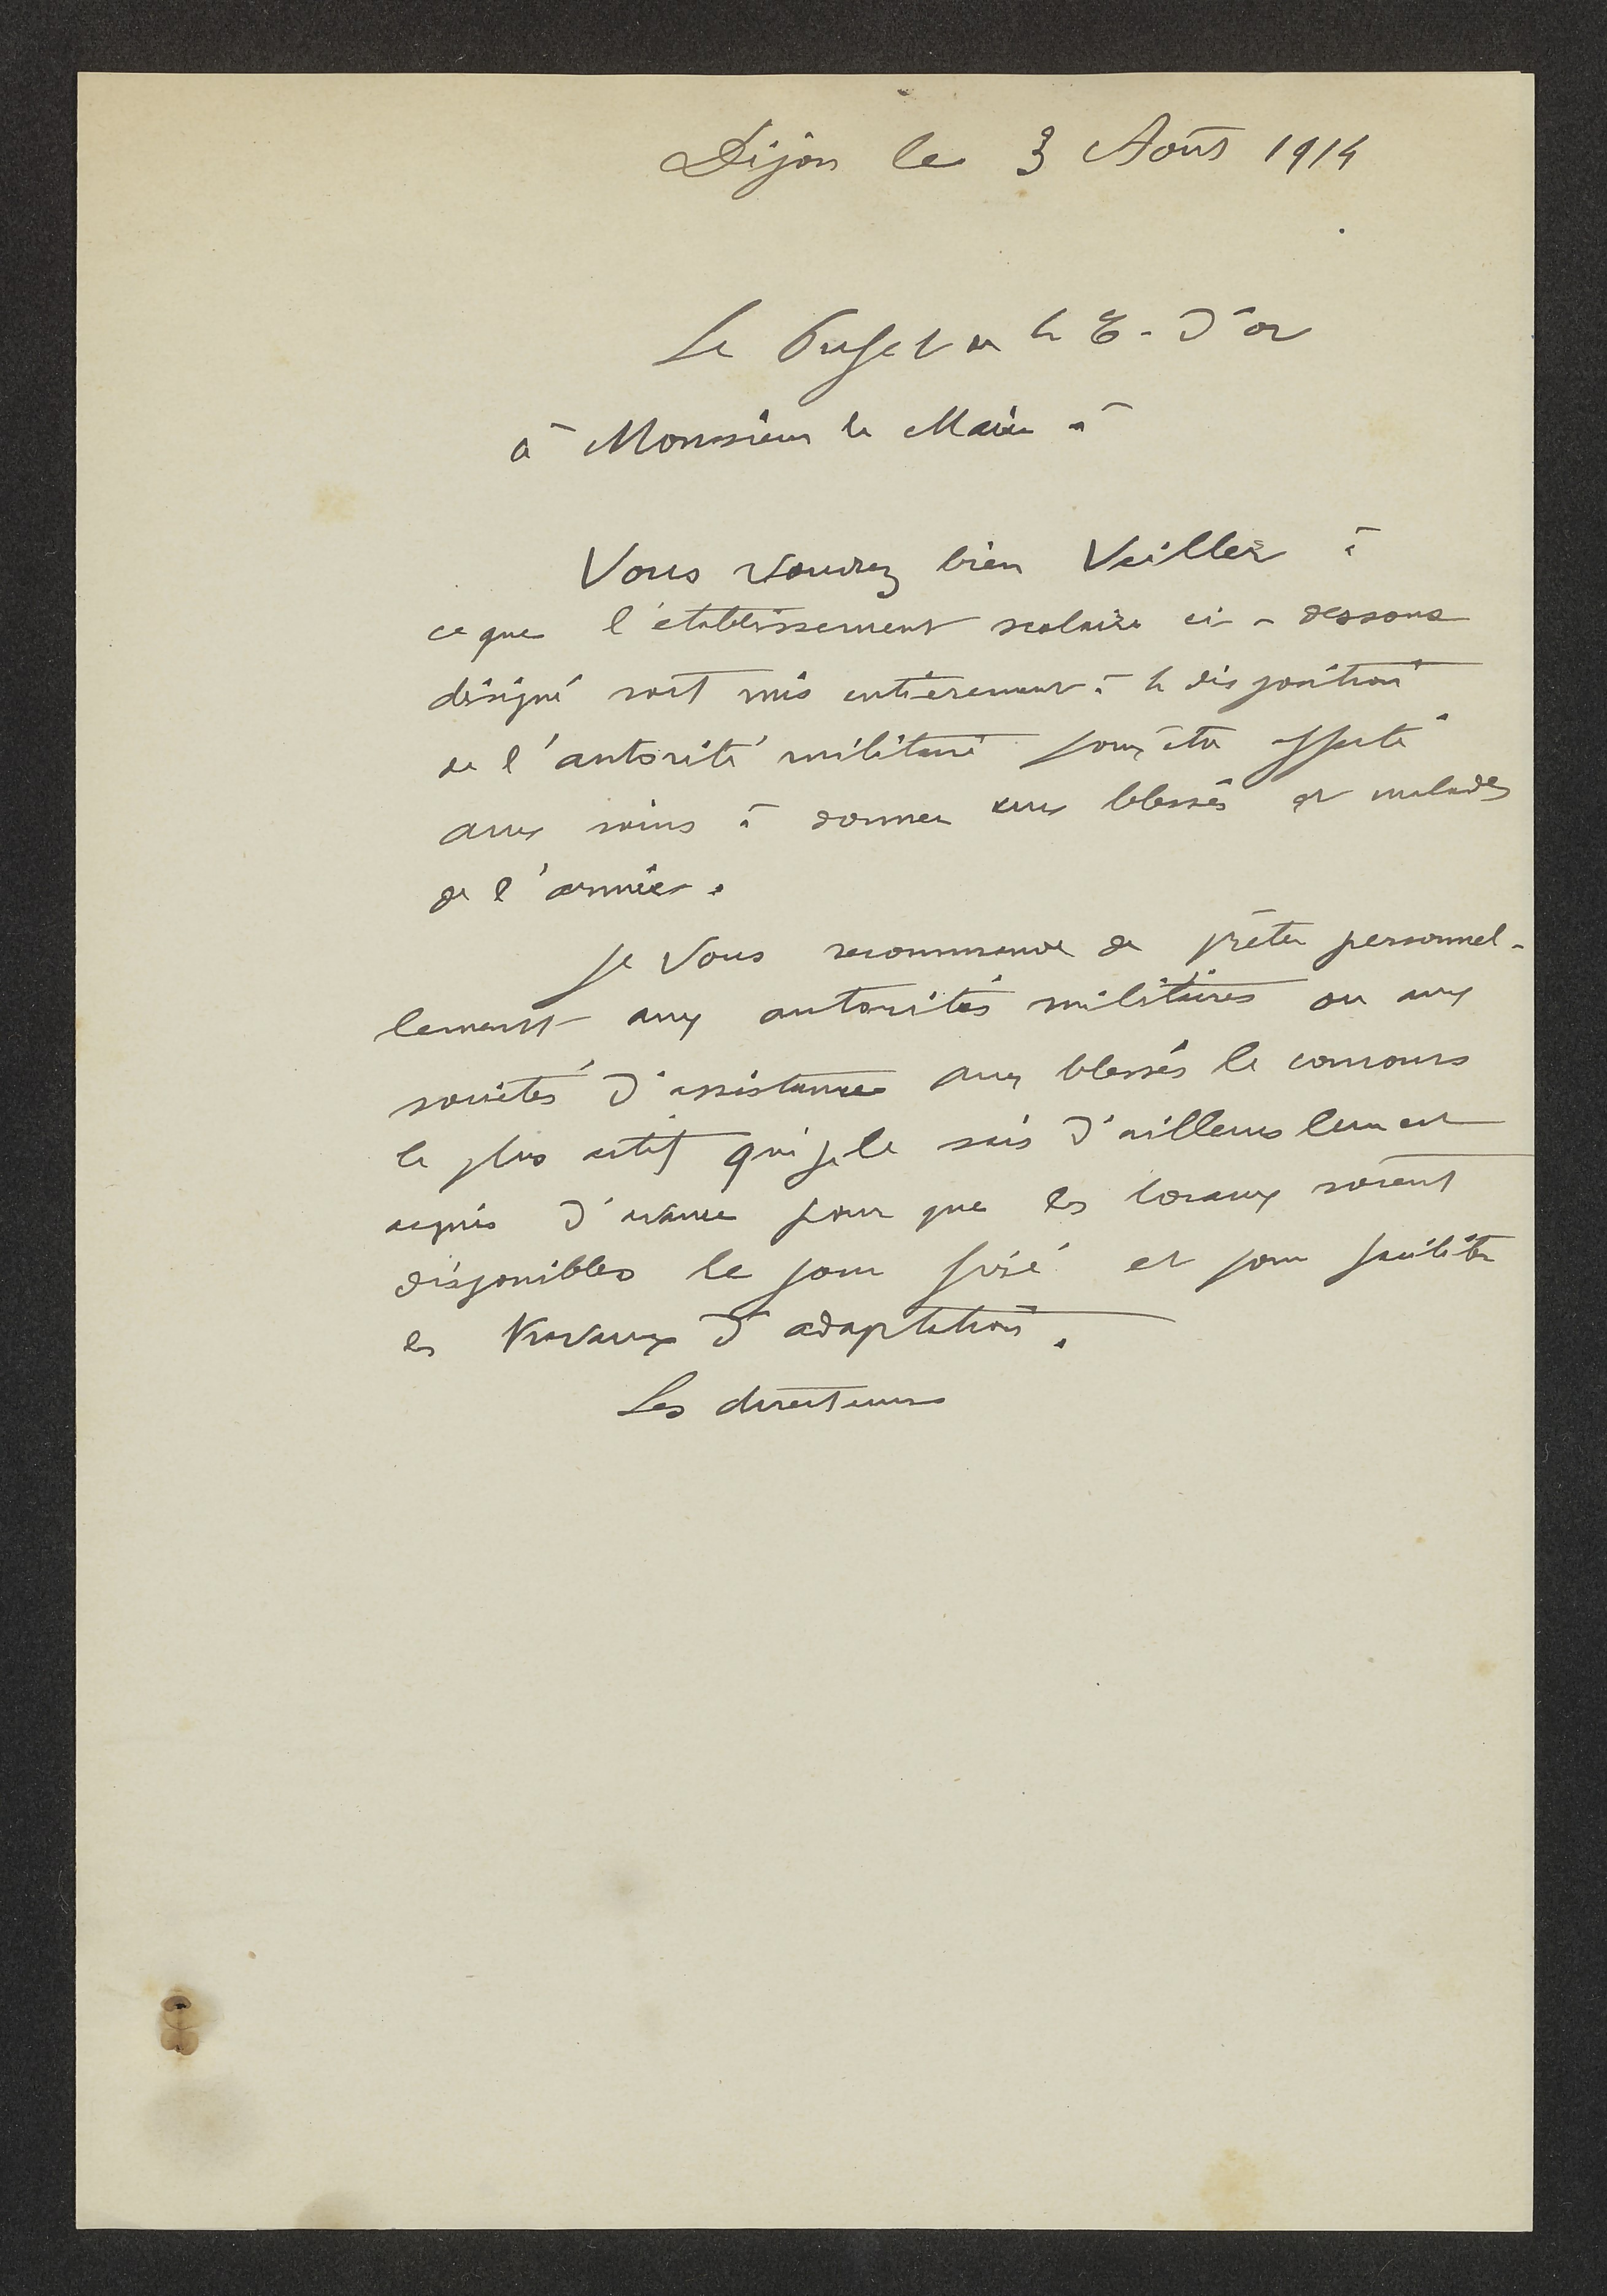 Dijon le 3 Août 1914
Le Préfet de la C. d'or
à Monsieur le Maire à
Vous voudrez bien Veiller à
ce que l'établissement scolaire ci-dessous
désigné soit mis entièrement à la disposition
de l'autorité militaire pour être affecté
aux soins à donner aux blessés et malades
de l'armée.
Je Vous recommande de prêter personnel-
lement aux autorités militaires ou aux
sociétés d'assistance aux blessés le concours
le plus actif qui je le sais d'ailleurs leur est
acquis d'avance pour que les locaux soient
disponibles le jour fixé et pour faciliter
les travaux d'adaptation.
Les directeurs